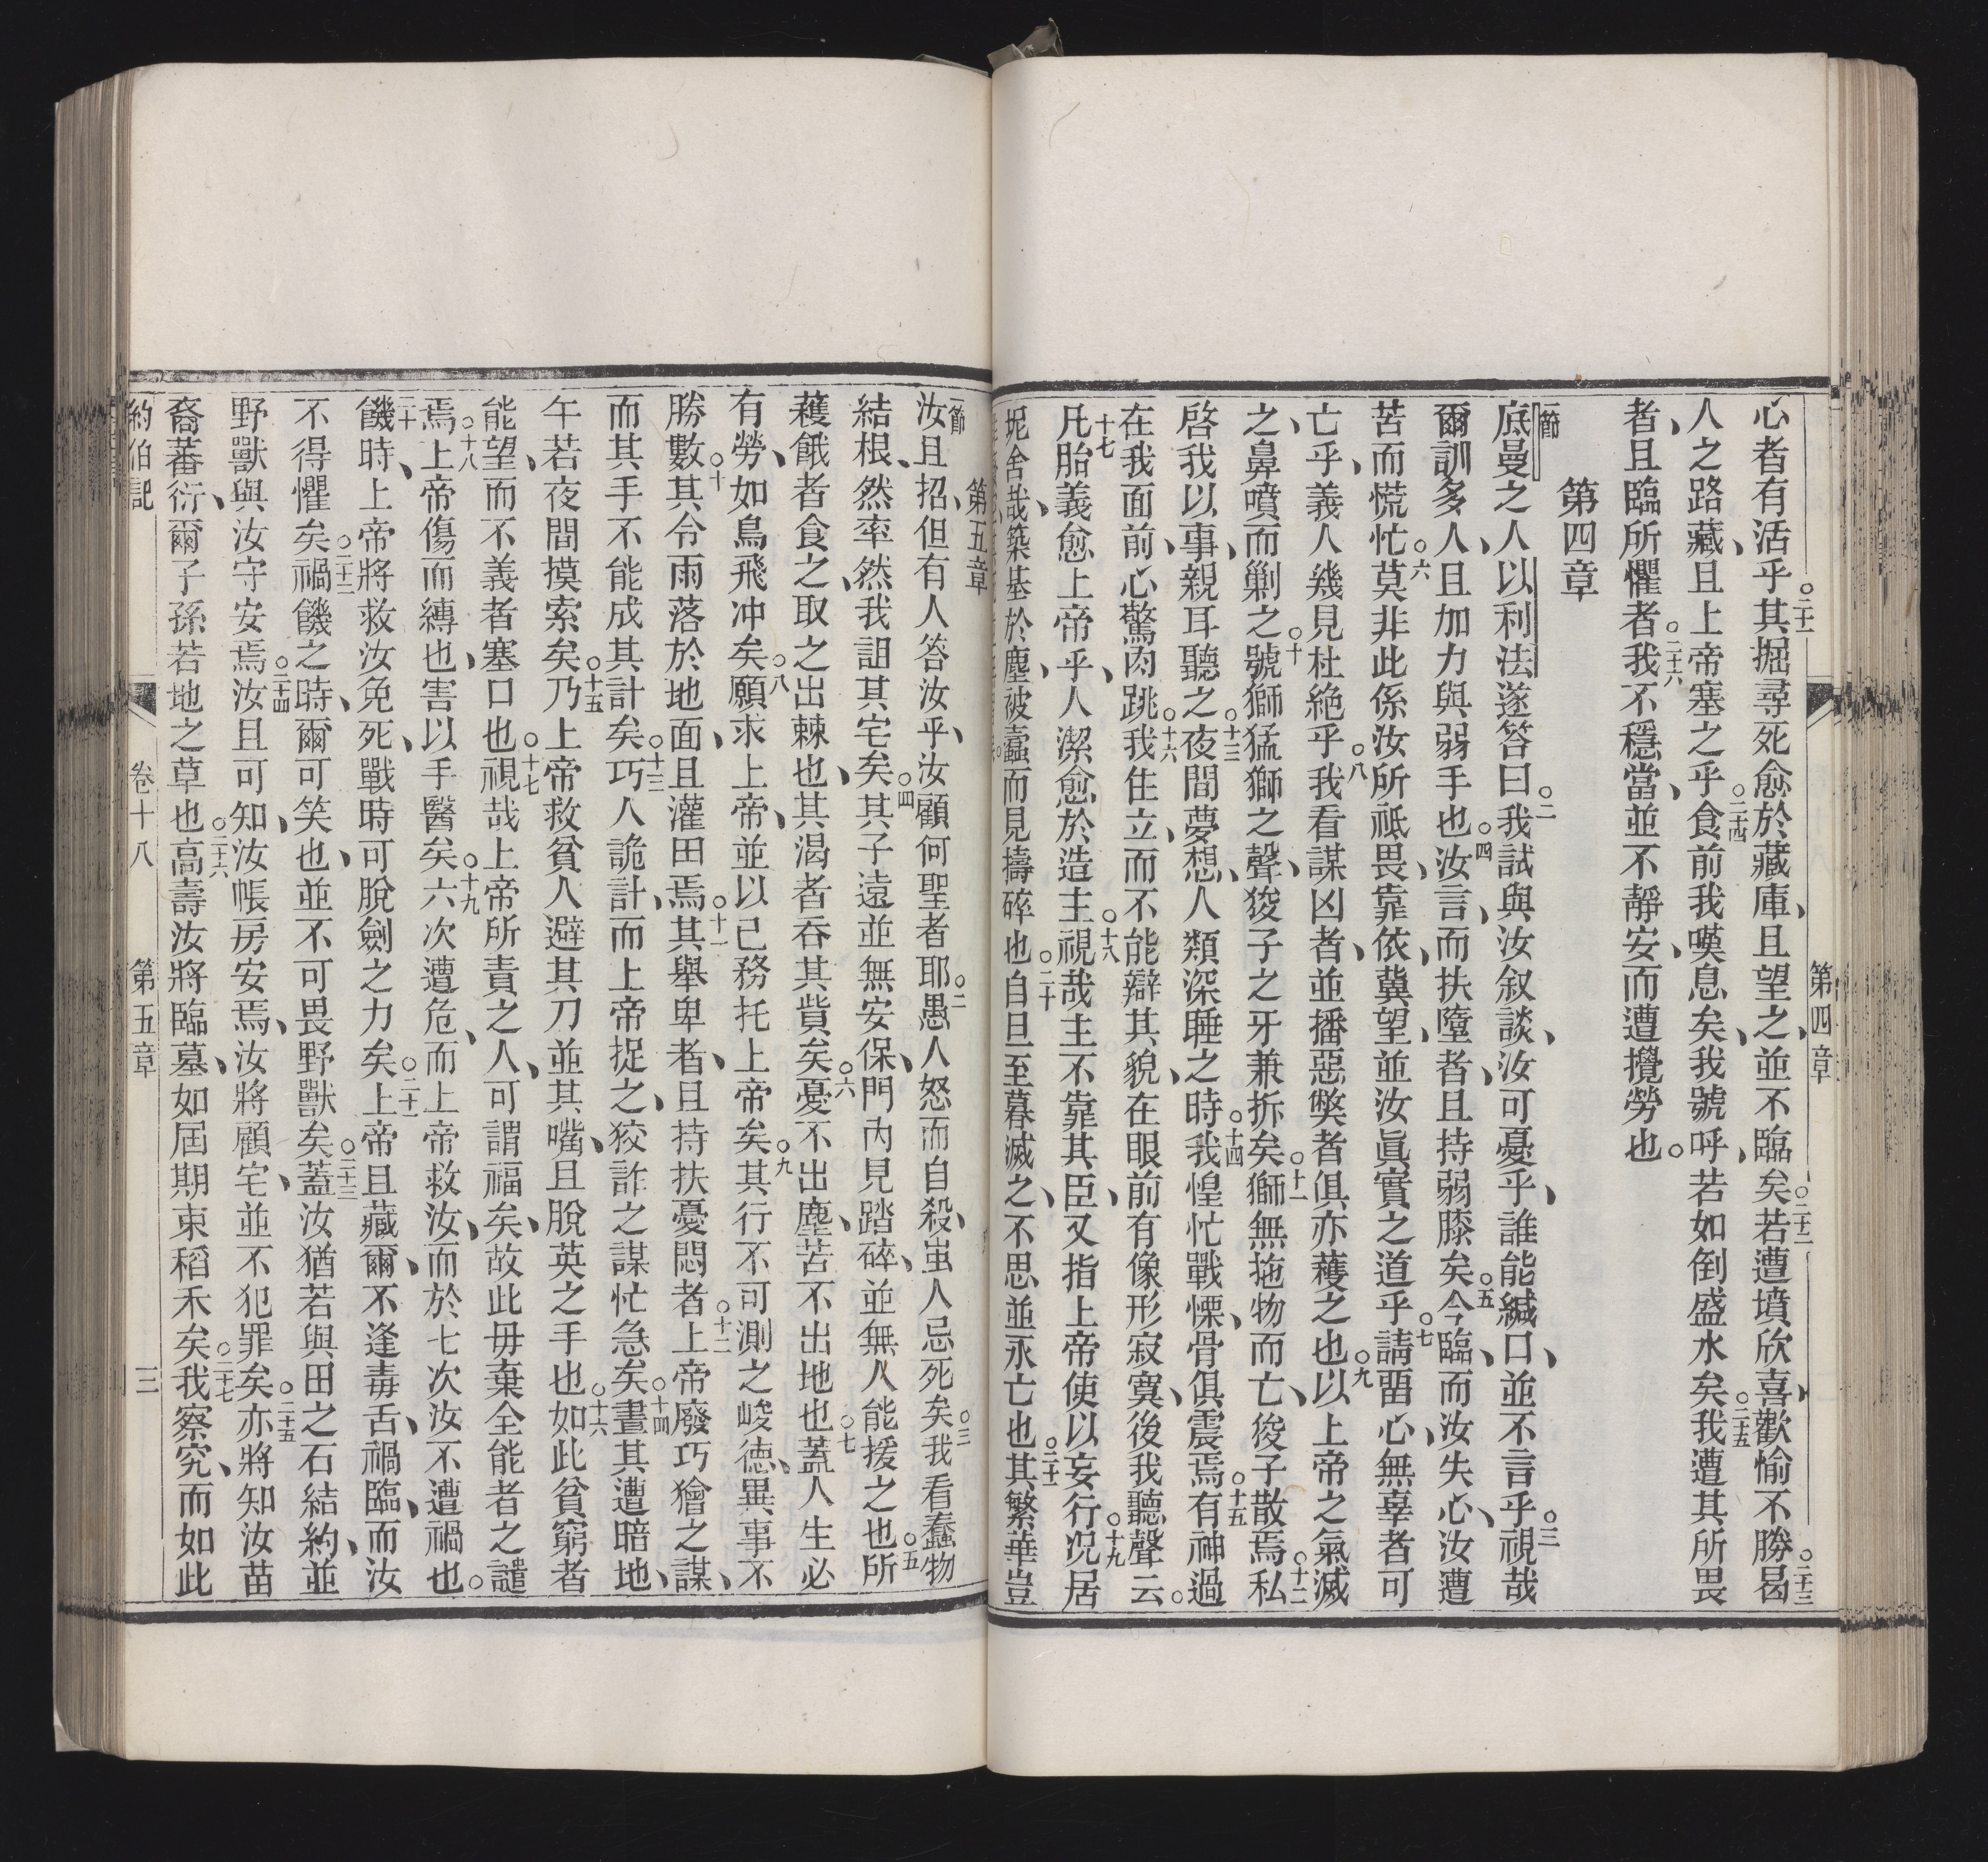 第四章
心者有活乎○二十一其掘尋死愈於藏庫、且望之、並不臨矣○二十二若遭墳欣喜、歡愉不勝○二十三曷
人之路藏、且上帝塞之乎○二十四食前我嘆息矣、我號呼、若如倒盛水矣○二十五我遭其所畏
者、且臨所懼者○二十六我不穩當、並不靜安、而遭攪勞也○
第四章
一節底曼之人以利法遂答曰○二我試與汝叙談、汝可憂乎、誰能緘口、並不言乎○三視哉
爾訓多人、且加力與弱手也○四汝言、而扶墮者、且持弱膝矣○五今臨、而汝失心、汝遭
苦而慌忙○六莫非此係汝所祗畏、靠依、冀望、並汝眞實之道乎○七請畱心、無辜者可
亡乎、義人幾見杜絶乎○八我看謀凶者、並播惡獘者俱亦穫之也○九以上帝之氣滅
之、鼻噴而剿之○十號獅猛獅之聲、狻子之牙兼拆矣○十一獅無拖物而亡、狻子散焉○十二私
啓我以事、親耳聽之○十三夜間夢想、人類深睡之時○十四我惶忙戰慄、骨俱震焉○十五有神過
在我面前、心驚肉跳○十六我住立、而不能辯其貌、在眼前有像形寂寞、後我聽聲云○
十七凡胎義愈上帝乎、人潔愈於造主○十八視哉主不靠其臣、又指上帝使以妄行○十九况居
坭舍哉、築基於塵、被蠹而見擣碎也○二十自旦至暮滅之、不思並永亡也○二十一其繁華豈
第五章
一節汝且招、但有人答汝乎、汝顧何聖者耶○二愚人怒而自殺、蚩人忌死矣○三我看蠢物
結根、然率然我詛其宅矣○四其子遠並無安保、門內見踏碎、並無人能援之也○五所
穫餓者食之、取之出棘也、其渴者吞其貲矣○六憂不出塵、苦不出地也○七蓋人生必
有勞、如鳥飛冲矣○八願求上帝、並以己務托上帝矣○九其行不可測之峻德、異事不
勝數○十其令雨落於地面、且灌田焉○十一其舉卑者、且持扶憂悶者○十二上帝廢巧獪之謀、
而其手不能成其計矣○十三巧人詭計、而上帝捉之、狡詐之謀忙急矣○十四晝其遭暗地、
午若夜間摸索矣○十五乃上帝救貧人避其刀並其嘴、且脫英之手也○十六如此貧窮者
能望、而不義者塞口也○十七視哉上帝所責之人、可謂福矣、故此毋棄全能者之譴
焉○十八上帝傷而縛也、害以手醫矣○十九六次遭危、而上帝救汝、而於七次汝不遭禍也○
二十饑時、上帝將救汝免死、戰時可脫劍之力矣○二十一上帝且藏爾、不逢毒舌、禍臨、而汝
不得懼矣○二十二禍饑之時、爾可笑也、並不可畏野獸矣○二十三蓋汝猶若與田之石結約、並
野獸與汝守安焉○二十四汝且可知、汝帳房安焉、汝將顧宅、並不犯罪矣○二十五亦將知汝苗
裔蕃衍、爾子孫若地之草也○二十六高壽汝將臨墓、如屆期束稻禾矣○二十七我察究、而如此
約伯記　卷十八　第五章　三